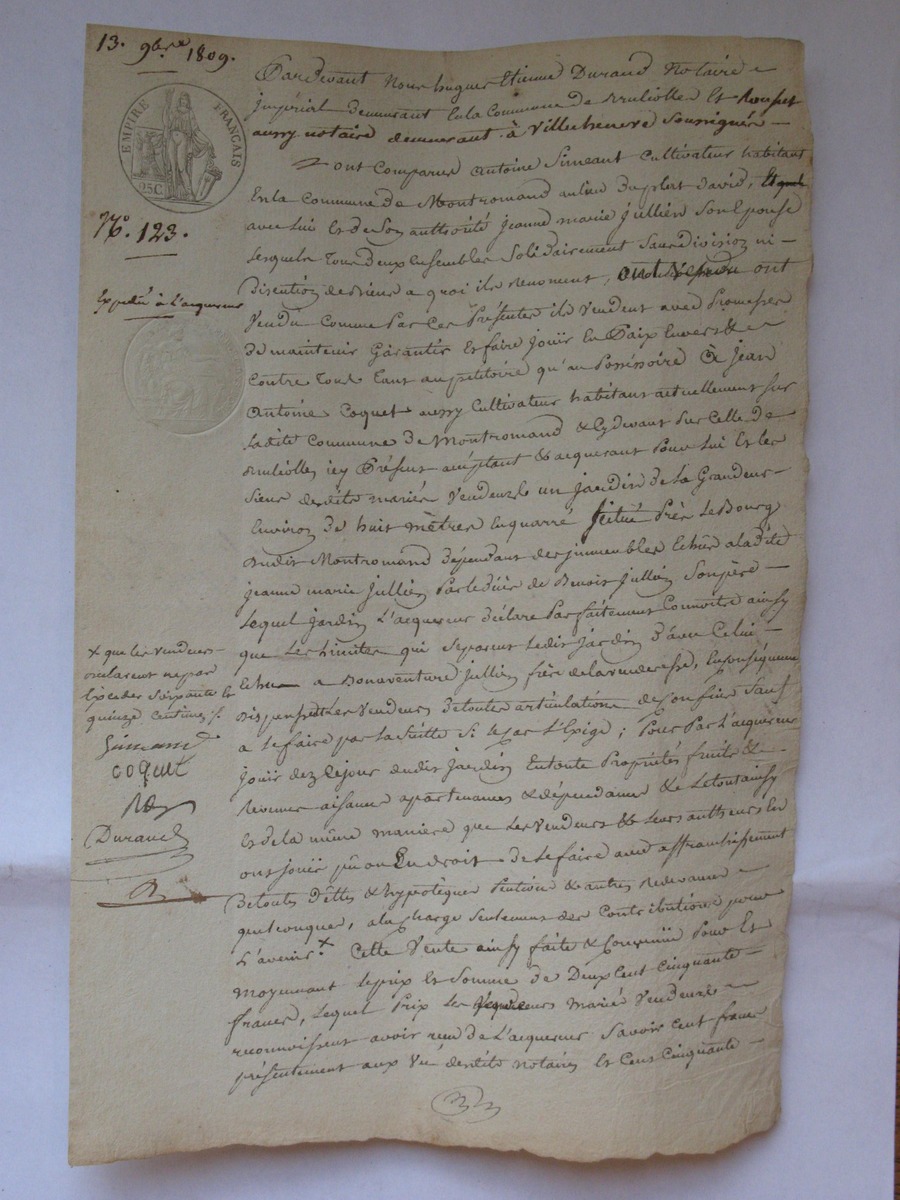 13. 9bre 1809.
EMPIRE FRANÇAIS
25C
N.º 123.
Expédié à l'acquereur
Pardevant Nous hugues Etienne Durand Notaire
impérial demeurant en la Commune de Bruliolles Et Rouset
aussy notaire demeurant à Villechenève Soussignés
ont Comparus Antoine Simeant Cultivateur habitant
En la Commune de Montromand au lieu du plat david,
avec lui Et de son authorité jeanne marie jullien Son Epouse
lesquels Tous deux ensembles Solidairement Sans division ni
discution de biens a quoi ils renoncent, ont
Vendu Comme Par Ces Présentes ils Vendent avec Promesses
de maintenir Garantir Et faire jouir En Paix Envers &
Contre Tous Tant au pétitoire qu'au Possessoire à jean
Antoine Coquet aussy Cultivateur habitant actuellement sur
ladite Commune de Montromand & cydevant sur Celle de
Bruliolles icy Présent acceptant & acquerant Pour Lui Et les
Siens desdits mariés Vendeurs un jardin de La Grandeur
Environ de huit mètres En quarré Situé Près Le Bourg
dudit Montromand dépendant des jmmeubles Echus à ladite
jeanne marie jullien Par le décès de Benoit jullien Son père
Lequel jardin L'acquereur déclare Parfaitement Connoitre ainsy
que les limites qui Séparent Ledit jardin d'avec Celui
Echu a Bonaventure jullien frère de la venderesse, En conséquence
dispense les Vendeurs de toutes articulations de Confins Sauf
a le faire par la Suitte Si le Cas L'Exige; Pour Par L'acquereur
jouir dez Ce jour dudit jardin En toute Propriétés fruits &
Revenus aisances apartenances & dépendances & Le tout ainsy
Et de la même manière que Les Vendeurs & leurs autheurs En
ont jouï pû ou En droit de le faire avec affranchissement
de toutes dettes & hypotèques Pentions & autres Redevances
quelconques, a la Charge Seulement des Contributions pour
L'avenir. x Cette Vente ainsy faite & Convenue Pour Et
moyennant le prix Et Somme de Deux Cent Cinquante
francs, Lequel Prix Les mariés Vendeurs
reconnoissent avoir reçu de L'acquereur Savoir Cent francs
présentement aux Vü desdits notaires Et Cent Cinquante
x que les vendeurs
declarent ne pas
Exceder soixante et
quinze centimes /.
Simeand
coquet
Durand